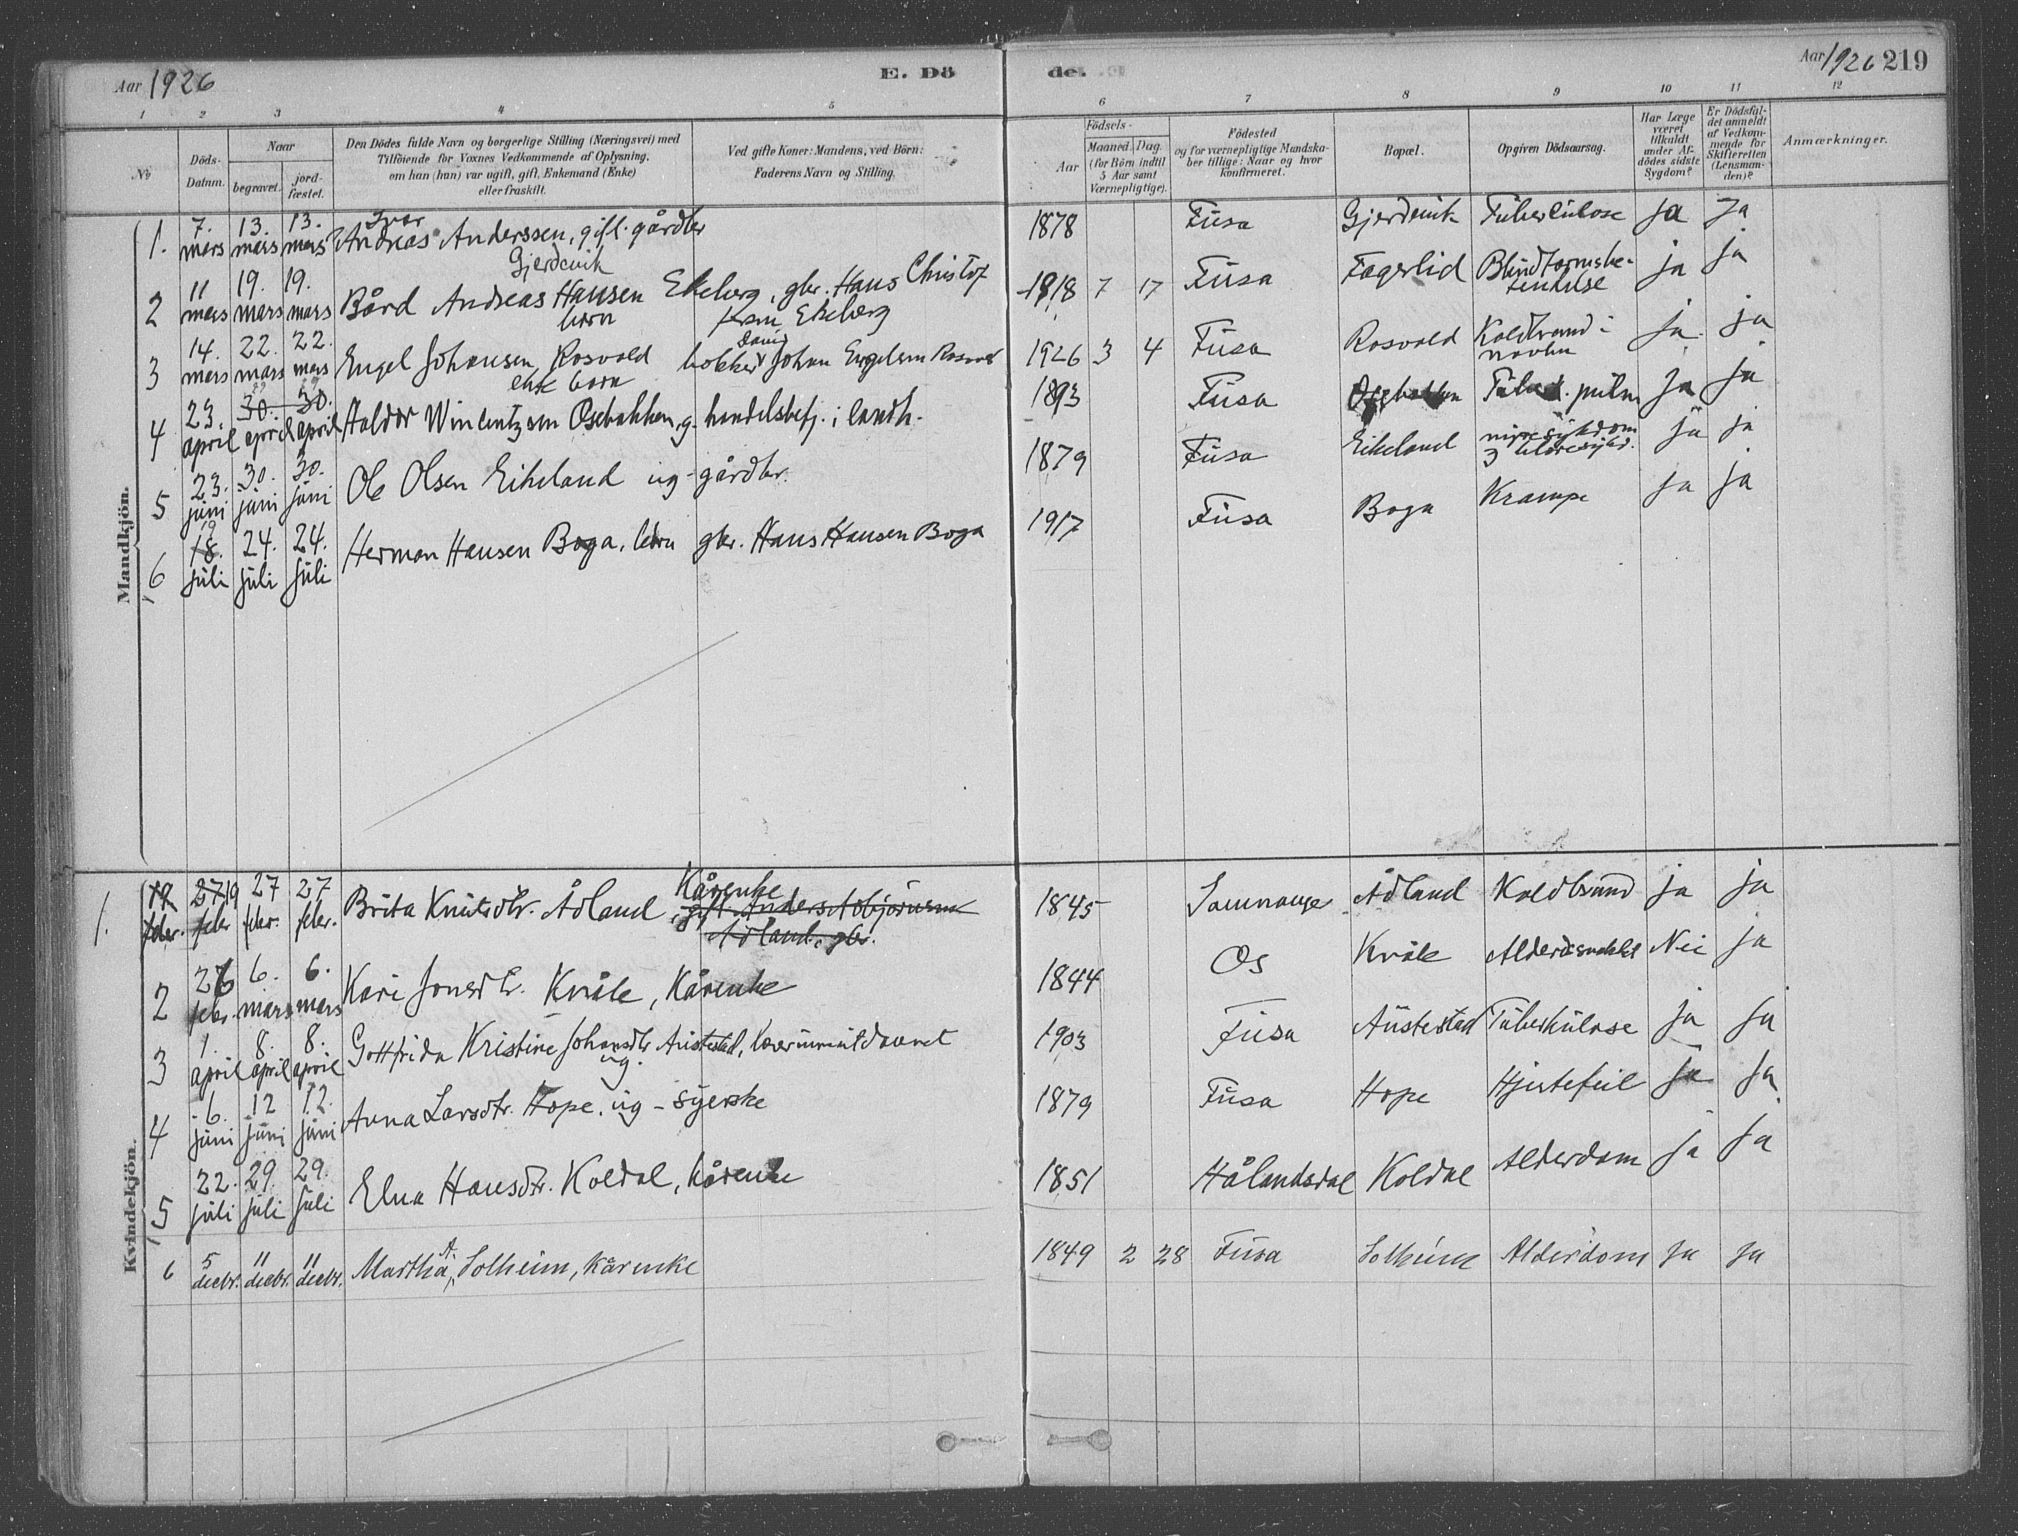 Aar 1926
E. Dö
de.
Aar 1926 219
1 2 3 4 5 6 7 8 9 10 11 12
No
Döds-
Datum.
Naar
begravet.
jord-
fæstet.
Den Dödes fulde Navn og borgerlige Stilling (Næringsvei) med
Tilföiende for Voxnes Vedkommende af Oplysning,
om han (hun) var ugift, gift, Enkemand (Enke)
eller fraskilt.
Ved gifte Koner: Mandens, ved Börn:
Faderens Navn og Stilling.
Födsels-
Aar
Maaned. Dag.
(for Börn indtil
5 Aar samt
Værnepligtige).
Födested
og for værnepligtige Mandska-
ber tillige: Naar og hvor
konfirmeret.
Bopæl.
Opgiven Dödsaarsag.
Har Læge
været
tilkaldt
under Af-
dödes sidste
Sygdom?
Er Dödsfal-
det anmeldt
af Vedkom-
mende for
Skifteretten
(Lensman-
den)?
Anmærkninger.
Mandkjön.
Ivar
1. 7. mars 13. mars 13. mars Andreas Anderssen, gift. gårdbr 1878 Fusa Gjerdevik Tuberkulose ja ja
Gjerdevik
2 11 mars 19. mars 19. mars Bård Andreas Hansen Ekeberg, gbr. Hans Christof 1918 7 17 Fusa Fagerlid Blindtarmsbe-
barn Ekeberg tendelse ja ja
3 14. mars 22. mars 22. mars Engel Johansen Rosvold bøkker Johan Engelsen 1926 3 4 Fusa Rosvold Koldbrand i
barn navlen ja ja
4 23. april 30. april 30. april Haldor Wincentzsen Osebakken, g. handelsbetj. i landh. 1893 Fusa pulm ja ja
5 23. juni 30. juni 30. juni Ole Olsen Eikeland ug - gårdbr. 1879 Fusa Eikeland nyresykdom ja ja
6 18. 19 juli 24. juli 24. juli Herman Hansen Boga, barn gbr. Hans Hansen Boga 1917 Fusa Boga Krampe ja ja
Kvindekjön.
1. 19 febr. 27 19 febr 27 febr. 27 febr. Brita Knutsdtr. Ådland, Kårenke 1845 Samnanger Ådland Koldbrand ja ja
gift Anders Asbjørnsen
Ådland, gbr.
2 26 febr. 6. mars 6. mars Kari Jonsdtr. Kvåle, Kårenke 1844 Os Kvåle Nei ja
3 1. april 8. april 8. april Gottfrida Kristine Johansdtr Austestad, 1903 Fusa Austestad Tuberkulose ja ja
ug.
4 6. juni 12 juni 12. juni Anna Larsdtr. Hope, ug - syerske 1879 Fusa Hope Hjertefeil ja ja
5 22. juli 29. juli 29. juli Elna Hansdtr. Koldal, kårenke 1851 Hålandsdal Koldal Alderdom ja ja
6 5 decbr. 11 decbr. 11 decbr. Martha A. Solheim, kårenke 1849 2 28 Fusa Solheim Alderdom ja ja